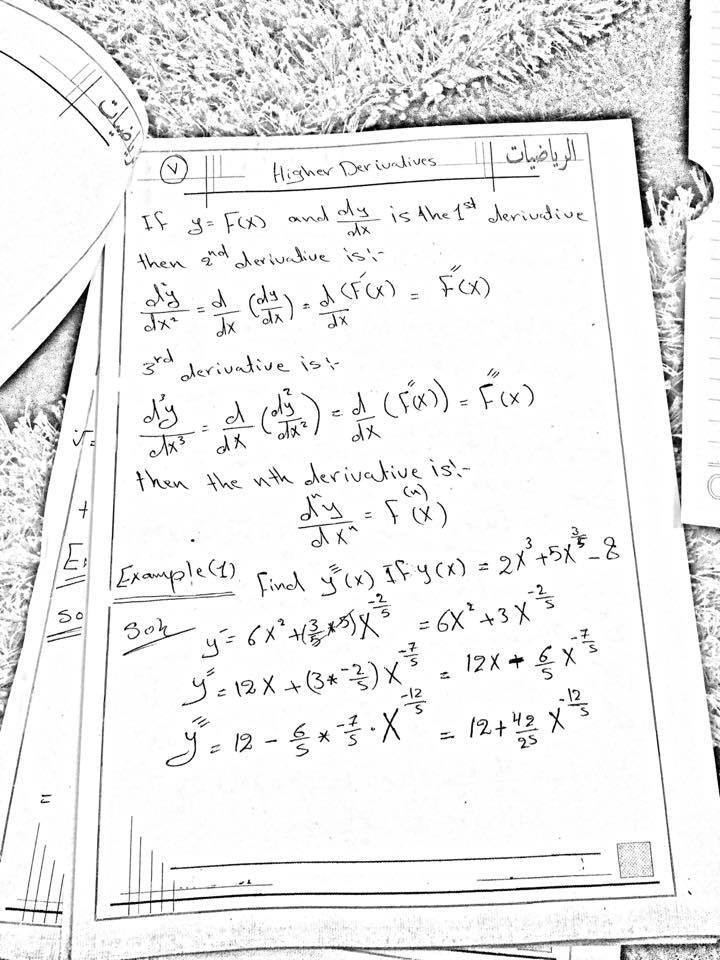 ٧
Higher Derivatives
الرياضيات
If y = F(x) and dy/dx is the 1st derivative
then 2nd derivative is:-
d²y/dx² = d/dx (dy/dx) = d/dx (F′(x) = F″(x)
3rd derivative is:-
d³y/dx³ = d/dx (d²y/dx²) = d/dx (F″(x)) = F‴(x)
then the nth derivative is:-
dⁿy/dxⁿ = F⁽ⁿ⁾(x)
Example(1) Find y‴(x) If y(x) = 2x³ + 5x^(3/5) - 8
Soln y′ = 6x² + (3/5 * 5)x^(-2/5) = 6x² + 3x^(-2/5)
y″ = 12x + (3 * -2/5) x^(-7/5) = 12x - 6/5 x^(-7/5)
y‴ = 12 - 6/5 * -7/5 · x^(-12/5) = 12 + 42/25 x^(-12/5)
رياضيات
+
So
=